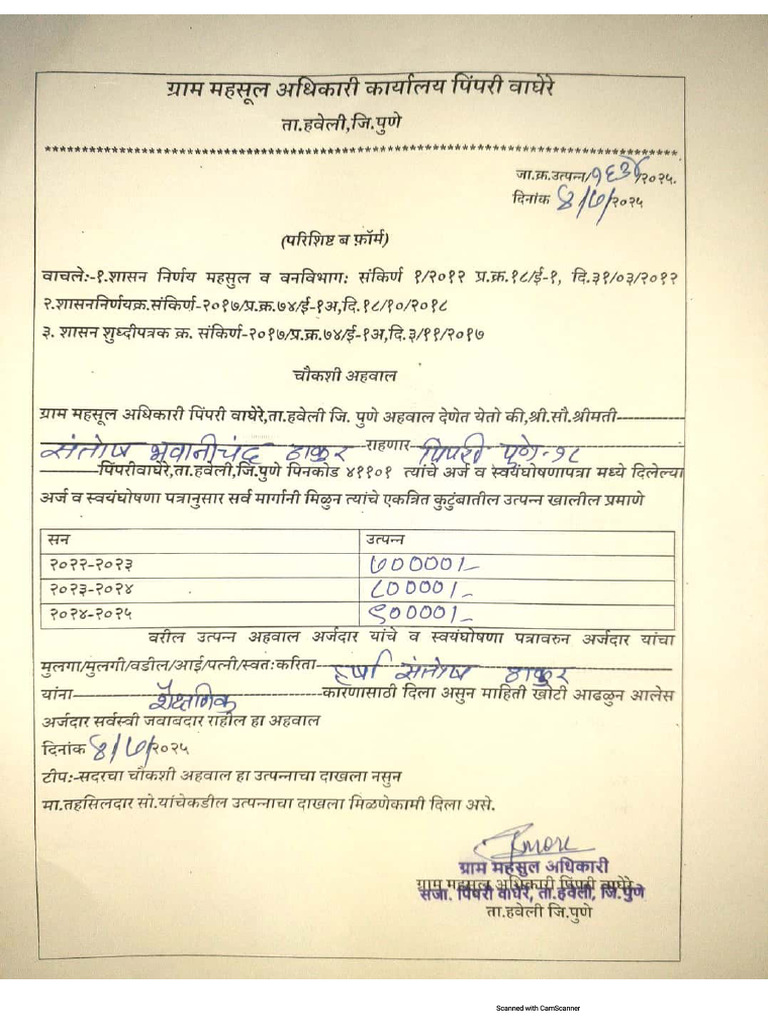 ग्राम महसूल अधिकारी कार्यालय पिंपरी वाघेरे
ता.हवेली,जि.पुणे
जा.क्र.उत्पन्न/१६३४/२०२५.
दिनांक ४/७/२०२५
(परिशिष्ट ब फ़ॉर्म)
वाचले:-१.शासन निर्णय महसुल व वनविभाग: संकिर्ण १/२०१२ प्र.क्र.१८/ई-१, दि.३१/०३/२०१२
२.शासननिर्णयक्र.संकिर्ण-२०१७/प्र.क्र.७४/ई-१अ,दि.१८/१०/२०१८
३. शासन शुध्दीपत्रक क्र. संकिर्ण-२०१७/प्र.क्र.७४/ई-१अ,दि.३/११/२०१७
चौकशी अहवाल
ग्राम महसूल अधिकारी पिंपरी वाघेरे,ता.हवेली जि. पुणे अहवाल देणेत येतो की,श्री.सौ.श्रीमती
संतोष भवानीचंद ठाकुर राहणार पिंपरी पुणे-१८
पिंपरीवाघेरे,ता.हवेली,जि.पुणे पिनकोड ४११०१ त्यांचे अर्ज व स्वयंघोषणापत्रा मध्ये दिलेल्या
अर्ज व स्वयंघोषणा पत्रानुसार सर्व मार्गानी मिळुन त्यांचे एकत्रित कुटुंबातील उत्पन्न खालील प्रमाणे
सन उत्पन्न
२०२२-२०२३ ७००००/-
२०२३-२०२४ ८००००/-
२०२४-२०२५ ९००००/-
वरील उत्पन्न अहवाल अर्जदार यांचे व स्वयंघोषणा पत्रावरुन अर्जदार यांचा
मुलगा/मुलगी/वडील/आई/पत्नी/स्वत:करिता हर्षा संतोष ठाकुर
यांना शैक्षणिक कारणासाठी दिला असुन माहिती खोटी आढळुन आलेस
अर्जदार सर्वस्वी जवाबदार राहील हा अहवाल
दिनांक ४/७/२०२५
टीप:-सदरचा चौकशी अहवाल हा उत्पन्नाचा दाखला नसुन
मा.तहसिलदार सो.यांचेकडील उत्पन्नाचा दाखला मिळणेकामी दिला असे.
ग्राम महसुल अधिकारी
ग्राम महसूल अधिकारी पिंपरी वाघेरे
सजा. पिंपरी वाघेरे, ता.हवेली, जि.पुणे
ता.हवेली जि.पुणे
Scanned with CamScanner